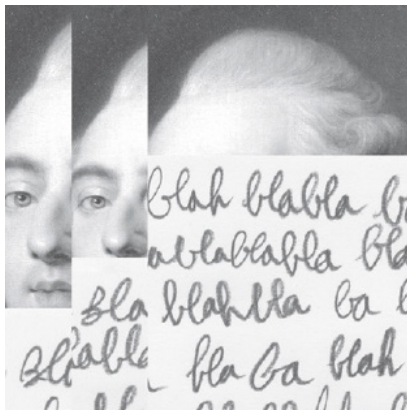 blah blabla
ablablabla bla
bla blahbla ba
bla ba blah